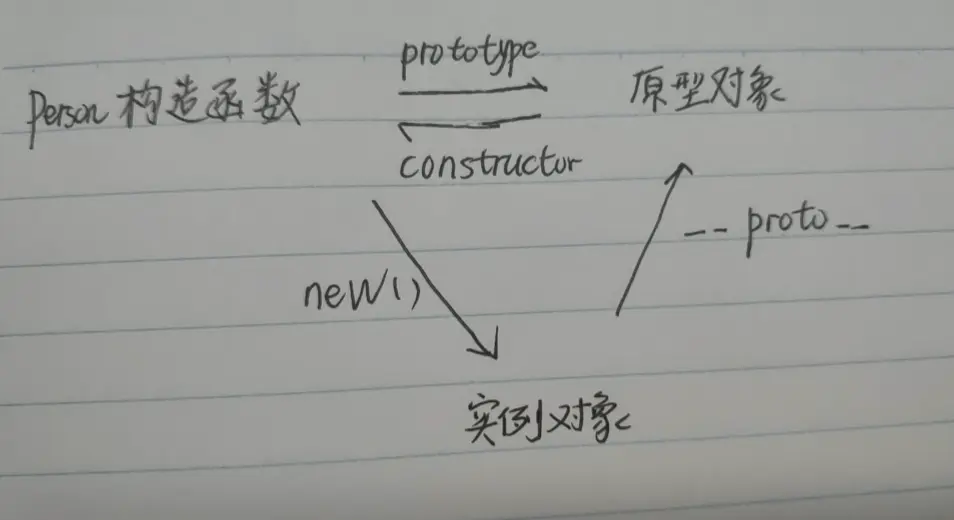 prototype
Person 构造函数
原型对象
constructor
__ proto __
new()
实例对象